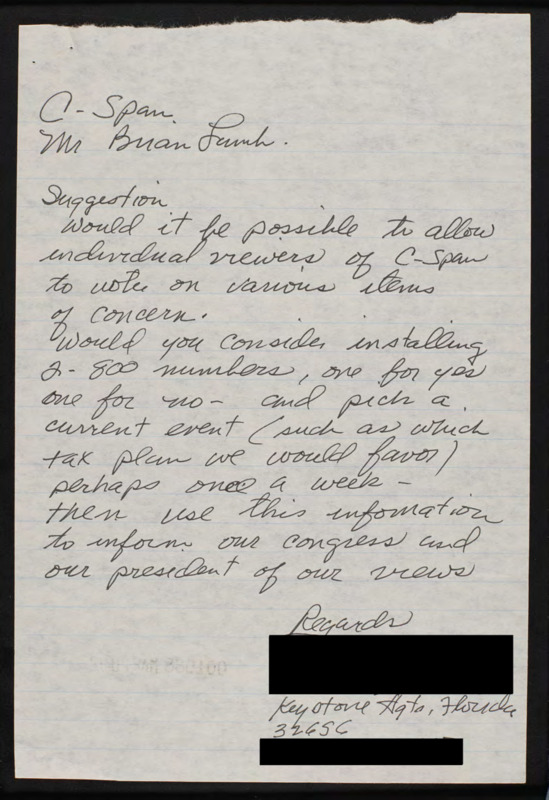 C-Span.
Mr Brian Lamb.
Suggestion
Would it be possible to allow
individual viewers of C-Span
to vote on various items
of concern.
Would you consider installing
2-800 numbers, one for yes
one for no- and pick a
current event (such as which
tax plan we would favor)
perhaps once a week -
then use this infomation
to inform our congress and
our president of our views
Regards
Keystone Hgts, Florida
32656